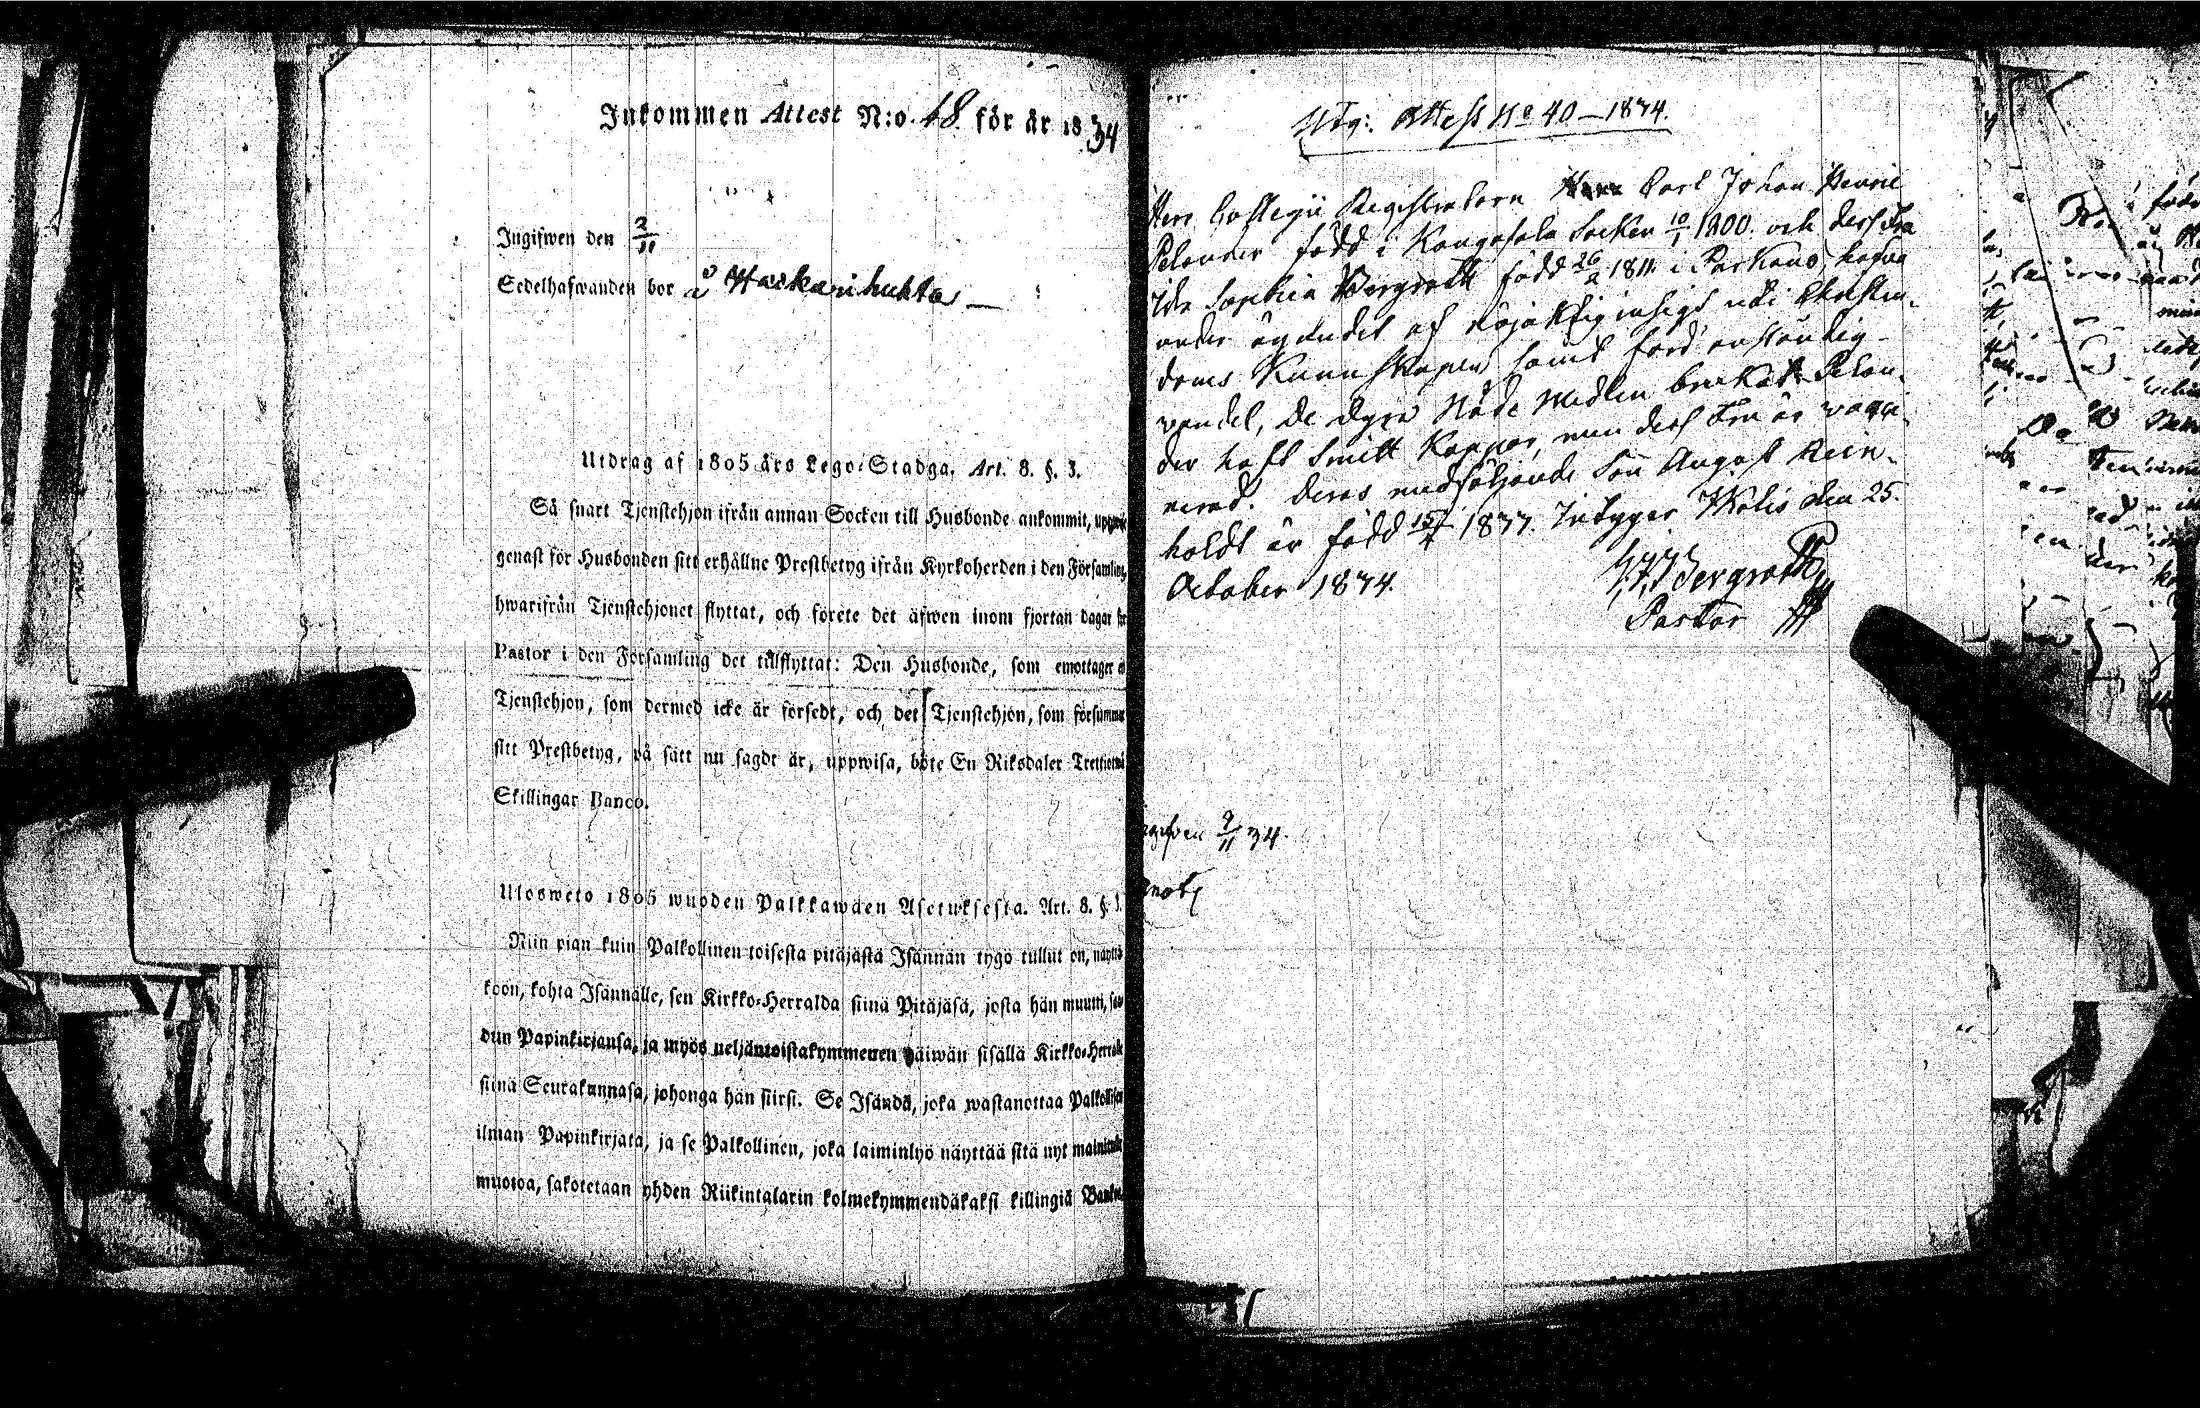 Inkommen Attest N:o 18. för år 1834
Ingifwen den 2/11
Sedelhafwanden bor å Haskarihukta
Utdrag af 1805 års Lego-Stadga, Art. 8. §. 3.
Så snart Tjenstehjon ifrån annan Socken till Husbonde ankommit,
genast för Husbonden sitt erhållne Prestbetyg ifrån Kyrkoherden i den Församling,
hwarifrån Tjenstehjonet flyttat, och förete det äfwen inom fjortan dagar för
Pastor i den Församling det tillflyttat: Den Husbonde, som emottager
Tjenstehjon, som dermed icke är försedt, och det Tjenstehjon, som försumme
sitt Prestbetyg, på sätt nu sagdt är, uppwisa, böte En Riksdaler
Skillingar Banco.
Ulosweto 1805 wuoden Palkkawäen Asetuksesta. Art. 8. §. 3.
Niin pian kuin Palkollinen toisesta pitäjästä Isännän tygö tullut on, näyttä
köön, kohta Isännälle, sen Kirkko-Herralda siinä Pitäjäsä, josta hän muutti, saa
dun Papinkirjansa, ja myös neljäntoistakymmenen päiwän sisällä Kirkko-Herralle
siinä Seurakunnasa, johonga hän siirsi. Se Isändä, joka wastanottaa Palkollisen
ilman Papinkirjata, ja se Palkollinen, joka laiminlyö näyttää sitä nyt mainittua
muotoa, sakotetaan yhden Riikintalarin kolmekymmendäkaksi killingiä Banko.
Utg: Attest No 40 – 1834.
Herr Collegii Registratorn Carl Johan Henric
Pelander född i Kangasala Socken 10/1 1800. och dess Fru
Ida Sophia Bergroth född 26/2 1811. i Parkano, hafva
under ägandet af nöjaktig insigt uti Christen-
doms Kunskapen samt förd anständig
vandel, De dyra Nåde Medlen brukat. Pelan-
der haft Smitt Koppor, men dess Fru är vacci-
nerad. Deras medföljande Son August Rein-
holdt är född 1833. Intygar Walis den 25.
October 1834.
Bergroth
Pastor
gifven 2/11 34.